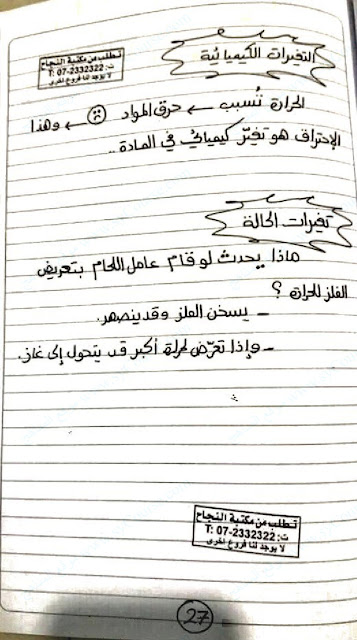 تطلب من مكتبة النجاح
ت: 2332322-07 :T
لا يوجد لنا فروع اخرى
التغيرات الكيميائية
الحرارة تُسبب ← حرق المواد ← وهذا
الإحتراق هو تغيّر كيميائي في المادة ..
تغيرات الحالة
ماذا يحدث لو قام عامل اللحام بتعريض
الفلز للحرارة ؟
- يسخن الفلز وقد ينصهر.
- وإذا تعرّض لحرارة أكبر قد يتحول إلى غاز.
تطلب من مكتبة النجاح
ت: 2332322-07 :T
لا يوجد لنا فروع اخرى
27